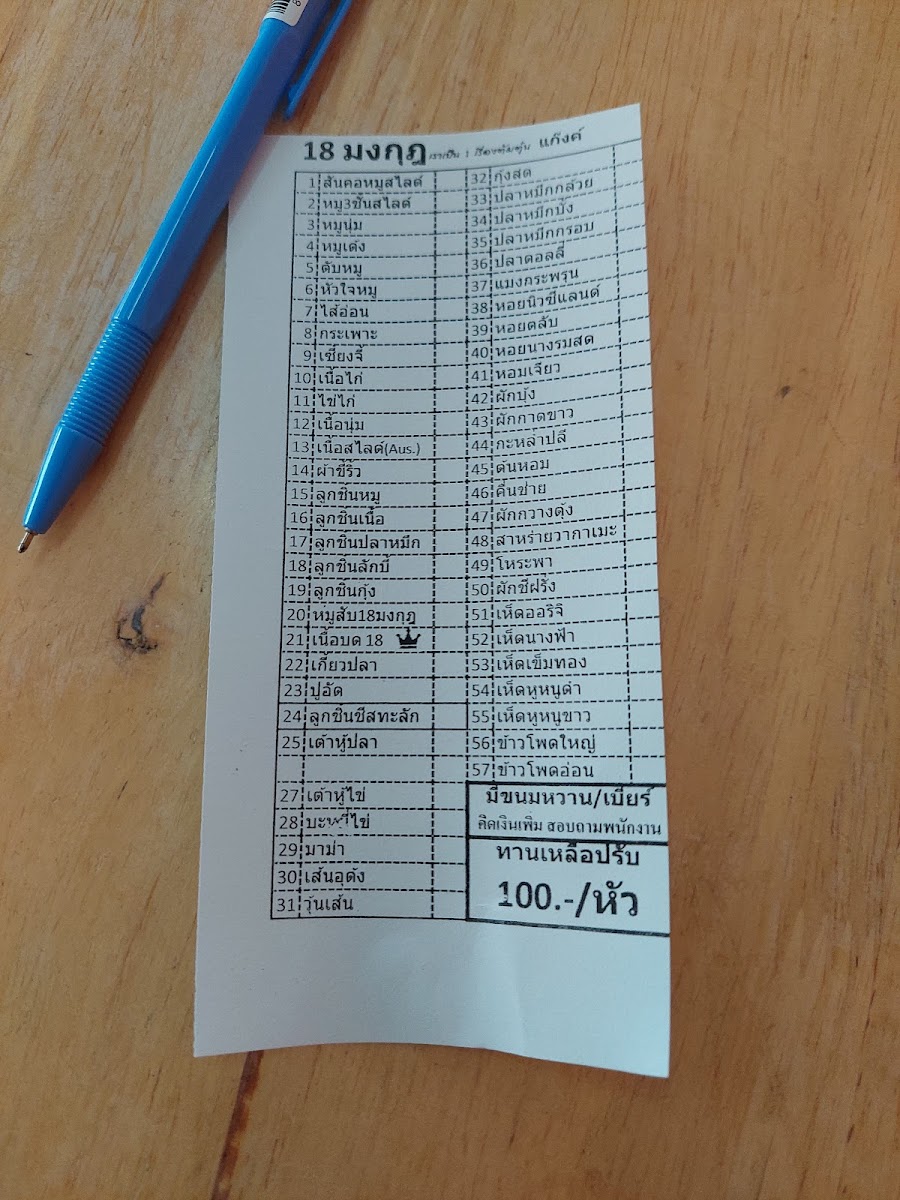 18 มงกุฎ เราเป็น : เรื่องชุ่มชุ่น แก๊งค์
1 สันคอหมูสไลด์
2 หมู3ชั้นสไลด์
3 หมูนุ่ม
4 หมูเด้ง
5 ตับหมู
6 หัวใจหมู
7 ไส้อ่อน
8 กระเพาะ
9 เซี่ยงจี้
10 เนื้อไก่
11 ไข่ไก่
12 เนื้อนุ่ม
13 เนื้อสไลด์(Aus.)
14 ผ้าขี้ริ้ว
15 ลูกชิ้นหมู
16 ลูกชิ้นเนื้อ
17 ลูกชิ้นปลาหมึก
18 ลูกชิ้นลักบี้
19 ลูกชิ้นกุ้ง
20 หมูสับ18มงกุฎ
21 เนื้อบด 18
22 เกี๊ยวปลา
23 ปูอัด
24 ลูกชิ้นชีสทะลัก
25 เต้าหู้ปลา
27 เต้าหู้ไข่
28 บะหมี่ไข่
29 มาม่า
30 เส้นอุด้ง
31 วุ้นเส้น
32 กุ้งสด
33 ปลาหมึกกล้วย
34 ปลาหมึกบั้ง
35 ปลาหมึกกรอบ
36 ปลาดอลลี่
37 แมงกระพรุน
38 หอยนิวซีแลนด์
39 หอยตลับ
40 หอยนางรมสด
41 หอมเจียว
42 ผักบุ้ง
43 ผักกาดขาว
44 กะหล่ำปลี
45 ต้นหอม
46 คื่นช่าย
47 ผักกวางตุ้ง
48 สาหร่ายวากาเมะ
49 โหระพา
50 ผักชีฝรั่ง
51 เห็ดออริจิ
52 เห็ดนางฟ้า
53 เห็ดเข็มทอง
54 เห็ดหูหนูดำ
55 เห็ดหูหนูขาว
56 ข้าวโพดใหญ่
57 ข้าวโพดอ่อน
มีขนมหวาน/เบียร์
คิดเงินเพิ่ม สอบถามพนักงาน
ทานเหลือปรับ
100.-/หัว